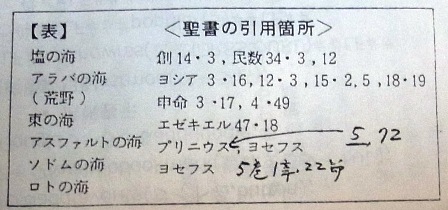 【表】 <聖書の引用箇所>
塩の海 創14・3, 民数34・3, 12
アラバの海 ヨシア3・16, 12・3, 15・2.5, 18・19
(荒野) 申命 3・17, 4・49
東の海 エゼキエル47・18
アスファルトの海 プリニウス, ヨセフス 5, 72
ソドムの海 ヨセフス 5巻1章, 22節
ロトの海